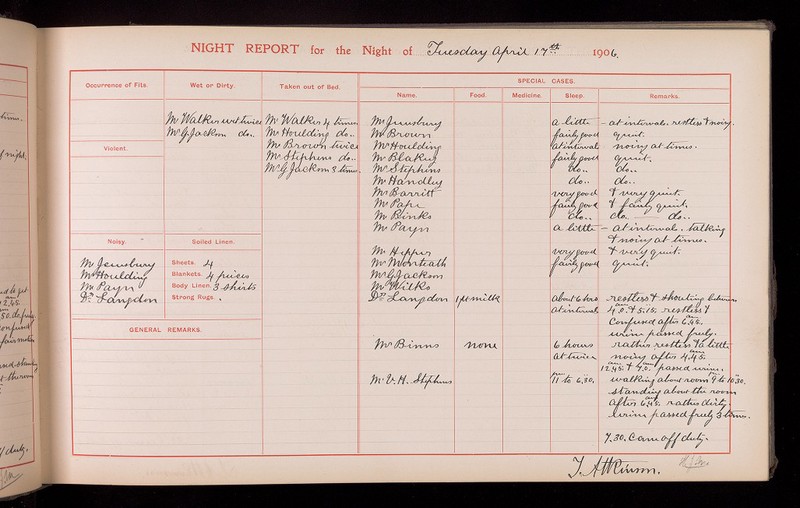 NIGHT REPORT for the Night of Tuesday April 17th 1906.
Occurrence of Fits.
Wet or Dirty.
Taken out of Bed.
SPECIAL CASES.
Name.
Food.
Medicine.
Sleep.
Remarks.
Mr Walker wet twice
Mr G Jackson do..
Violent.
Mr Walker 4 times
Mr Houlding do..
Mr Brown twice
Mr Stephens do..
Mr G Jackson 3 times
Noisy.
Mr Houlding
Mr Payn
Dr Langdon
Soiled Linen.
Sheets 4
Blankets. 4 pieces
Body Linen. 3 shirts
Strong Rugs.
GENERAL REMARKS.
a little - at intervals. restless & noisy.
Mr Brown fairly good quiet.
Mr Houlding at interval noisy at times.
Mr Blakey fairly good quiet.
Mr Stephens do.. do..
Mr Handley do.. do..
Mr Barritt very good & very quiet.
Mr Pape fairly good & fairly quiet.
Mr Binks do.. do. do..
Mr Payn a little - at intervals. talking
& noisy at times.
very good & very quiet.
Mr Monteath fairly good quiet.
Mr G Jackson
Mr Wilks
Dr Langdon 1 pt milk about 6 hrs restless & shouting between
at intervals 4.0. & 5.15. restless &
confused after 6.45.
urine passed freely.
Mr Binns none 6 hours rather restless & a little
noisy after 4.45.
12.45. & 7.0. passed urine.
Mr V. H. Stephens 11 to 6.30. walking about room 9 to 10.30.
standing about the room
after 6.45. rather dirty.
Urine passed freely 3 times.
7.30. Came off duty.
J. Atkinson.